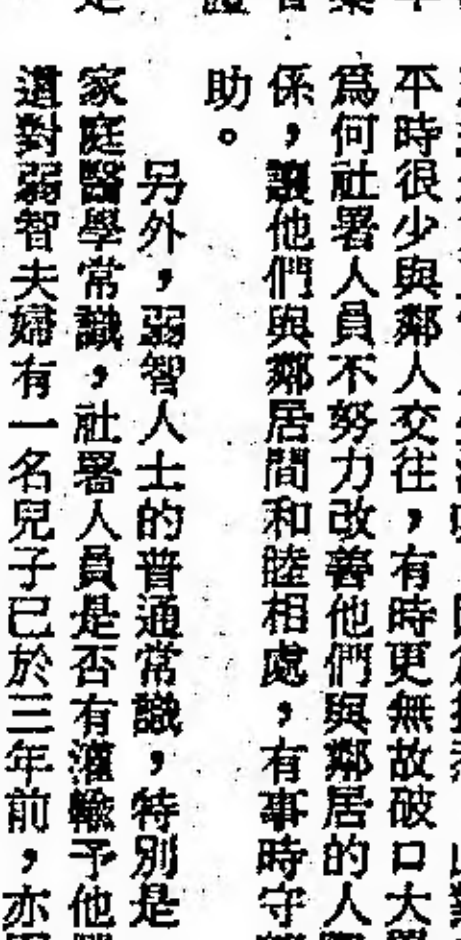 平時很少與鄰人交往，有時更無故破口大
為何社署人員不努力改善他們與鄰居的人
係，讓他們與鄰居間和睦相處，有事時守
助。
另外，弱智人士的普通常識，特別是
家庭醫學常識，社署人員是否有灌輸予他
這對弱智夫婦有一名兒子已於三年前，亦